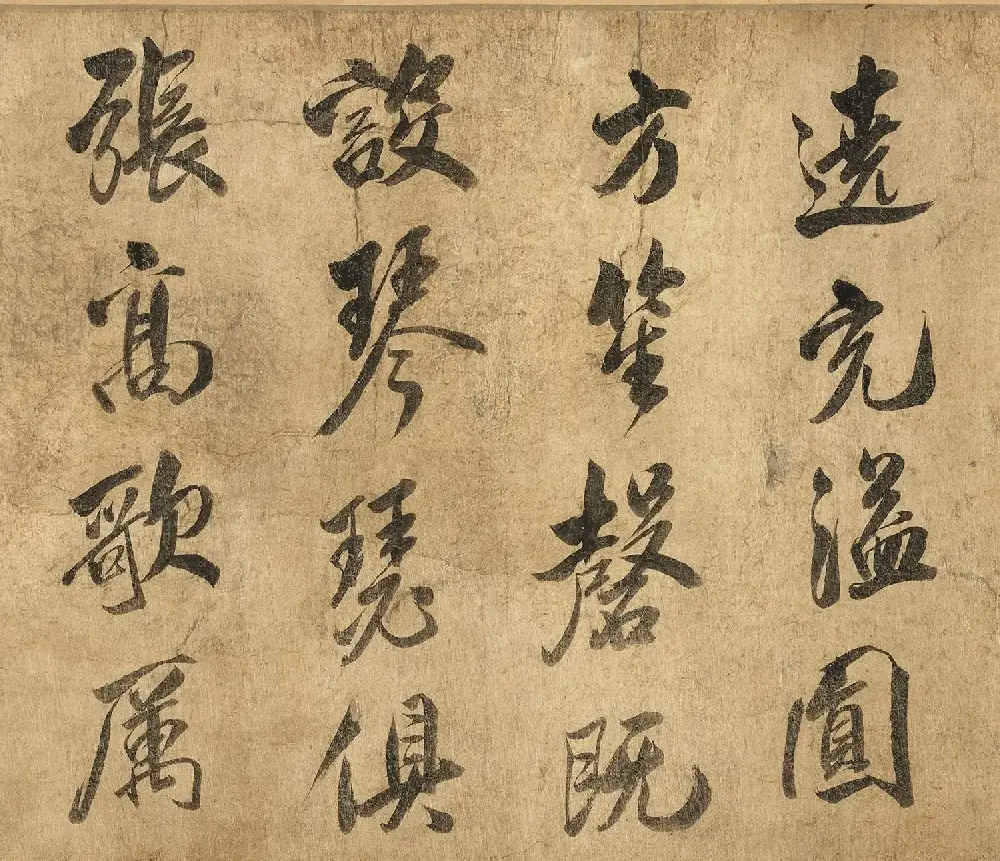 遶充溢圓
方笙磬既
設琴瑟俱
張高歌厲